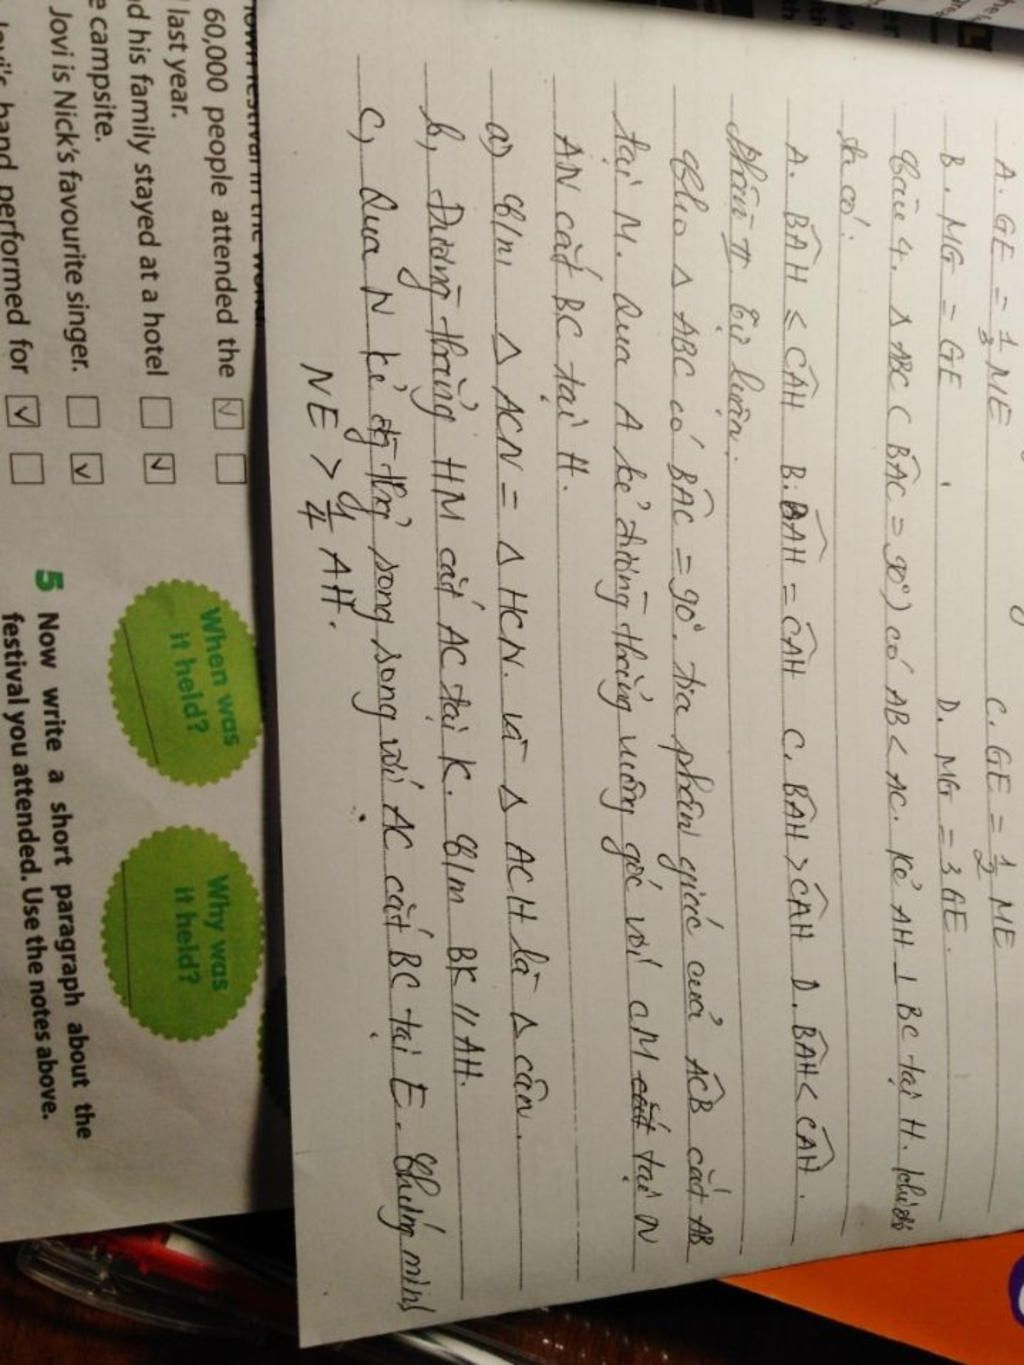 A. GE = 1/3 ME C. GE = 1/2 ME
B. MG = GE D. MG = 3 GE.
Câu 4. Δ ABC (BAC = 90°) có AB < AC. Kẻ AH ⊥ BC tại H. khi đó
ta có:
A. BAH ≤ CAH B. BAH = CAH C. BAH > CAH D. BAH < CAH.
Phần II Tự luận.
Cho Δ ABC có BAC = 90°. tia phân giác của ACB cắt AB
tại M. Qua A kẻ đường thẳng vuông góc với CM cắt tại N
AN cắt BC tại H.
a) C/m Δ ACN = Δ HCN. và Δ ACH là Δ cân.
b, Đường thẳng HM cắt AC tại K. C/m BK // AH.
c, Qua N kẻ đg thg song song với AC cắt BC tại E. Chứng minh
NE > 1/4 AH.
60,000 people attended the
last year.
d his family stayed at a hotel
e campsite.
Jovi is Nick's favourite singer.
band performed for
When was
it held?
Why was
it held?
5 Now write a short paragraph about the
festival you attended. Use the notes above.